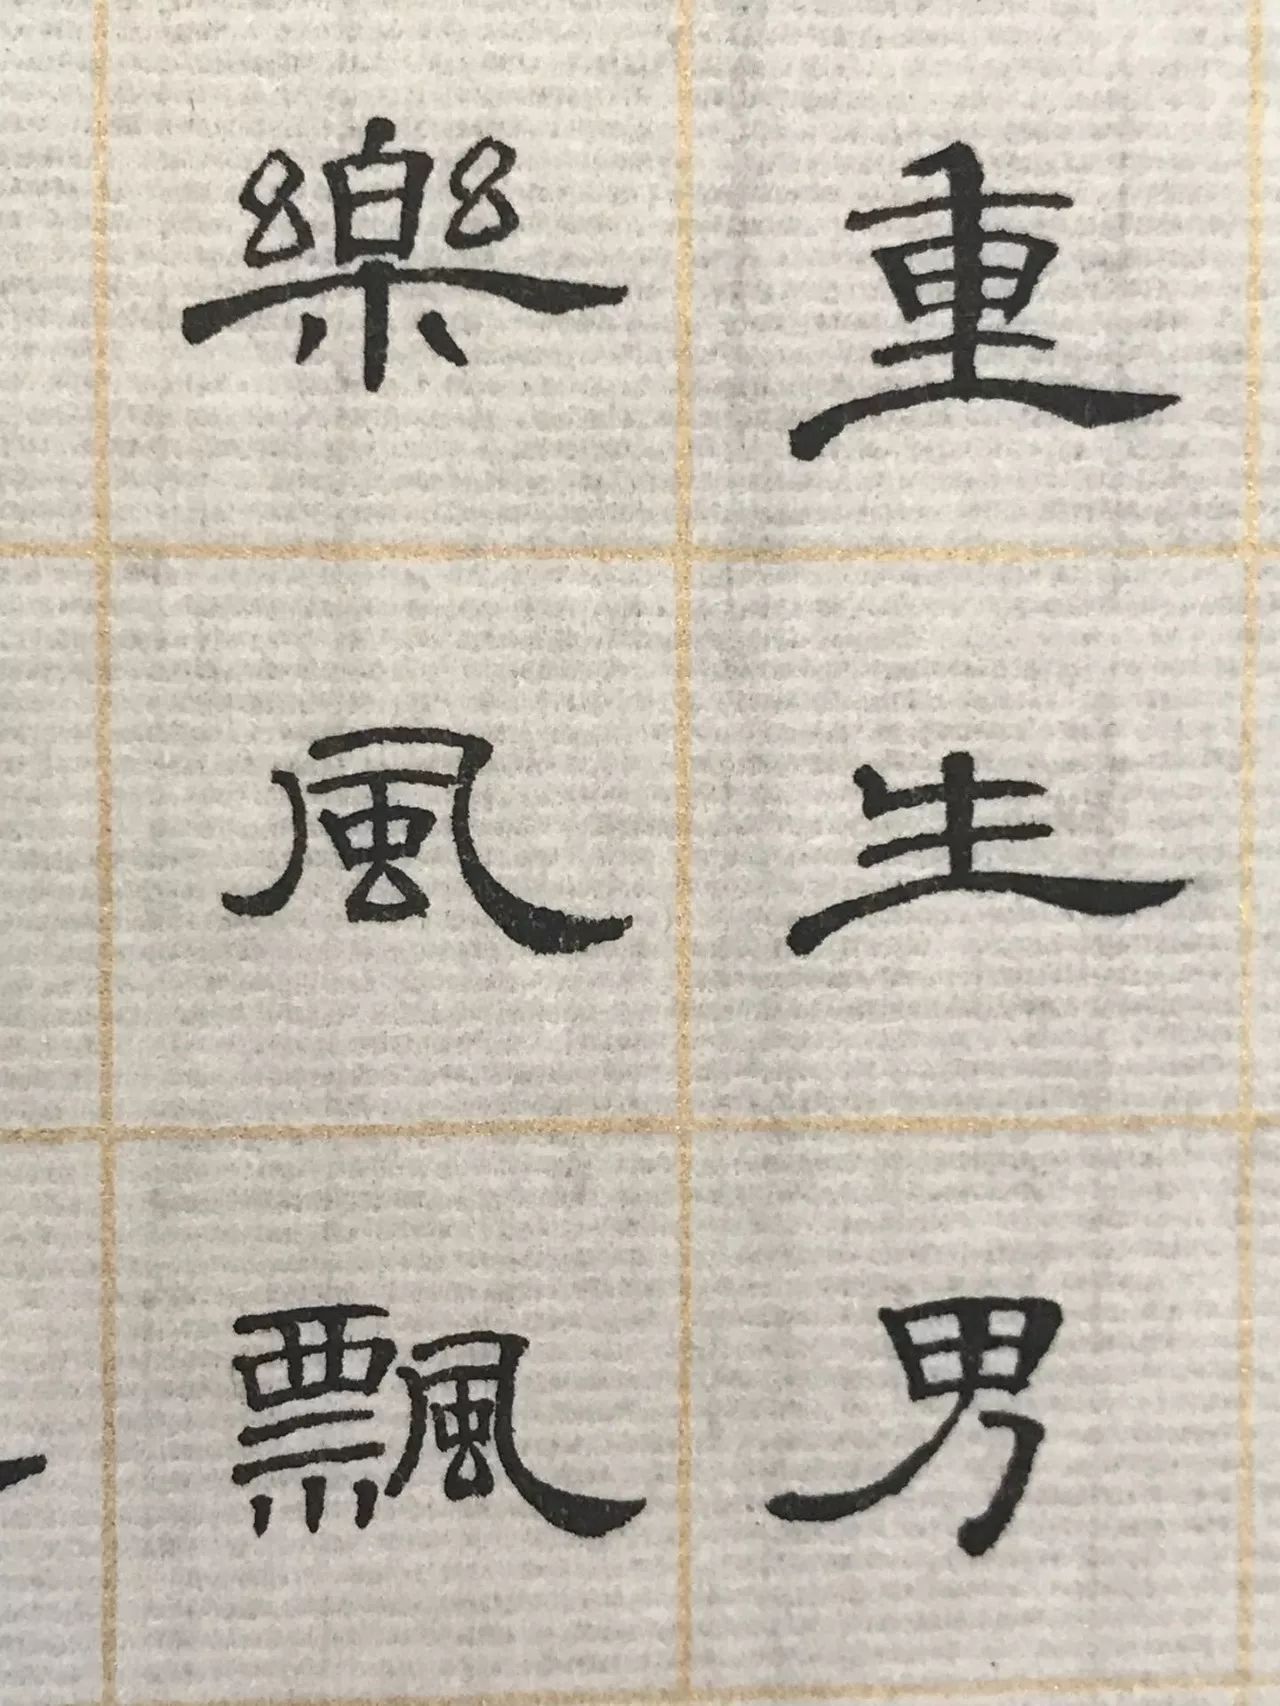 重生男
樂風飄